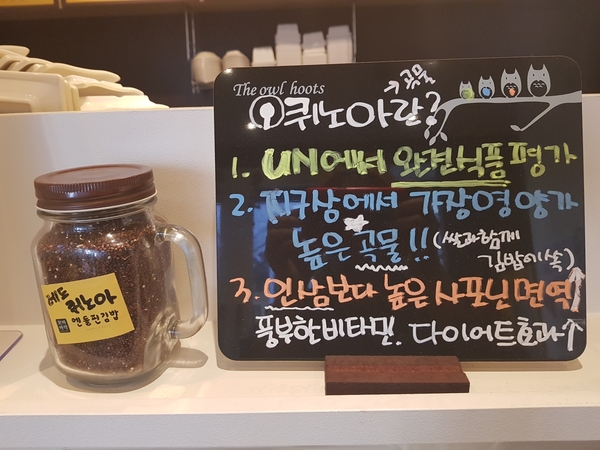 The owl hoots
곡물
퀴노아란?
1. UN에서 완전식품 평가
2. 지구상에서 가장 영양가
높은 곡물!! (쌀과 함께
김밥에 쏙)
3. 인삼보다 높은 사포닌 면역↑
풍부한 비타민. 다이어트 효과↑
레드
퀴노아
앤돌핀김밥